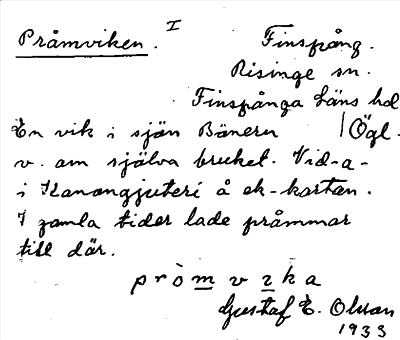 Pråmviken. I Finspång.
Risinge sn.
Finspånga läns hd
En vik i sjön Bönern | Ögl.
v. om själva bruket. Vid -a-
i Kanongjuteri å ek-kartan.
I gamla tider lade pråmmar
till där.
pròmvika
Gustaf E. Olsson
1933